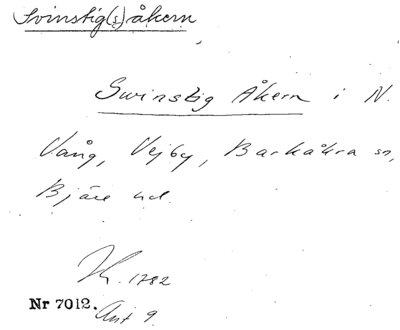 Svinstig(s)åkern
Swinstig Åkern i N.
Vång, Vejby, Barkåkra sn,
Bjäre hd.
1782
Nr 7012. Akt 9